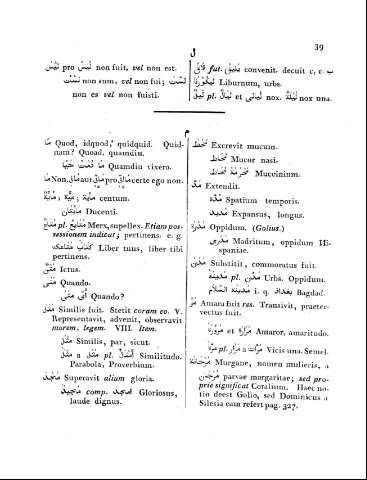 39
ل
لَيْسَ pro لَيْسَ non fuit, vel non est.
لَسْتُ non sum, vel non fui; لَسْتَ
non es vel non fuisti.
fut. يَلِيقُ convenit. decuit c. c. ب
Liburnum, urbs.
لَيْلَةٌ nox una. لَيْلٌ nox. pl. لَيَالٍ et لَيَالِي
م
مَا Quod, idquod, quidquid. Quid-
nam? Quoad. quamdiu.
Quamdiu vixero.
مَا Non. aut pro certe ego non.
centum.
Ducenti.
مَتَاعٌ pl. Merx, supelles. Etiam pos-
sessionem indicat; pertinens. e. g.
Liber tuus, liber tibi
pertinens.
Ictus.
مَتَى Quando.
Quando?
مَثَلَ Similis fuit. Stetit coram eo. V.
Representavit, advenit, observavit
morem, legem. VIII. Item.
مِثْلٌ Similis, par, sicut.
مَثَلٌ a pl. أَمْثَالٌ Similitudo.
Parabola, Proverbium.
Superavit alium gloria.
مَجِيدٌ comp. Gloriosus,
laude dignus.
Excrevit mucum.
مُخَاطٌ Mucor nasi.
Muccinium.
مَدَّ Extendit.
مُدَّة Spatium temporis.
مَدِيدٌ Expansus, longus.
Oppidum. (Golius.)
Madritum, oppidum Hi-
spaniae.
Substitit, commoratus fuit.
مَدِينَةٌ pl. مُدُنٌ Urbs. Oppidum.
مَدِينَة السَّلَام i. q. بغداد Bagdad.
مَرَّ Amara fuit res. Transivit, praeter-
vectus fuit.
et Amaror, amaritudo.
مَرَّةٌ pl. مَرَّات a مِرَار Vicis una. Semel.
مَرْجَانَة Murgane, nomen mulieris, a
parvae margaritae; sed pro-
prie significat Coralium. Haec no-
tio deest Golio, sed Dominicus a
Silesia eam refert pag. 327.